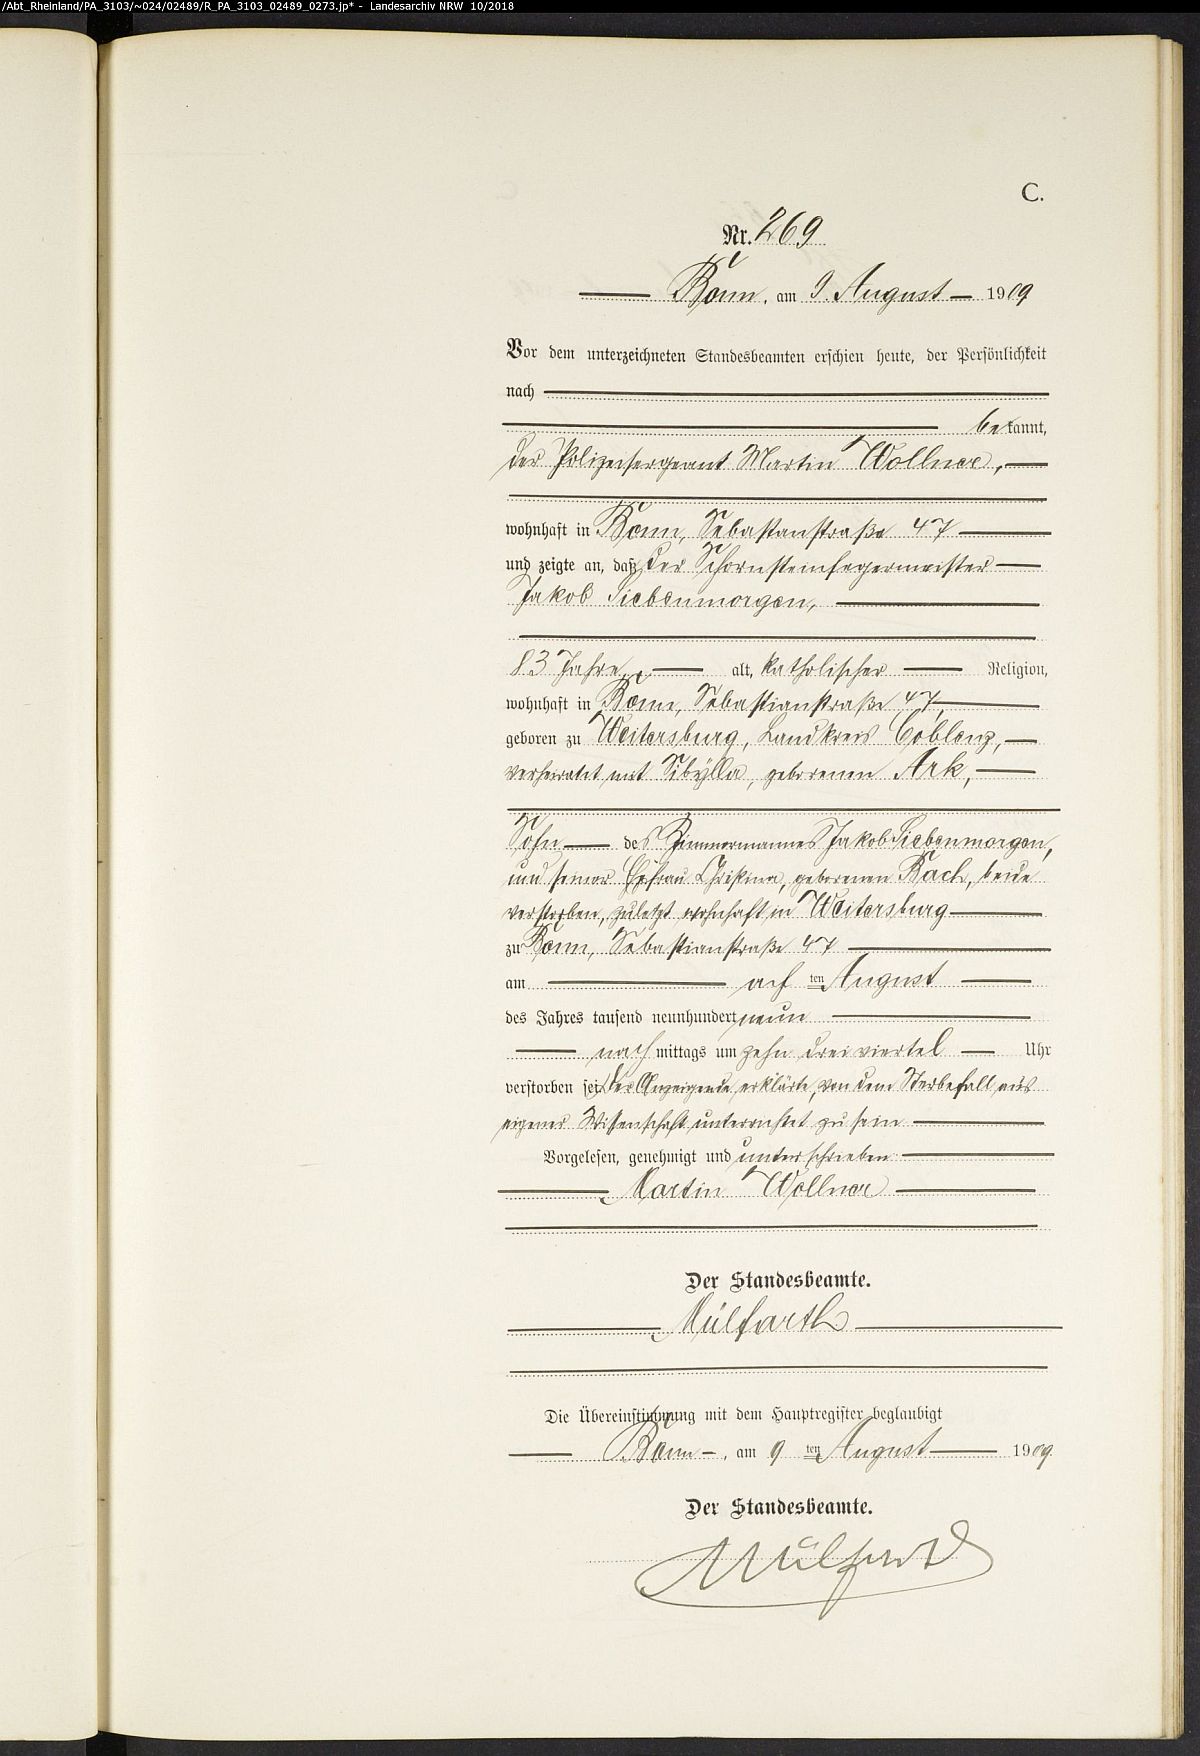 /Abt_Rheinland/PA_3103/~024/02489/R_PA_3103_02489_0273.jp* - Landesarchiv NRW 10/2018
C.
Nr. 269
Bonn, am 9. August 1909
Vor dem unterzeichneten Standesbeamten erschien heute, der Persönlichkeit
nach
bekannt,
der Polizeisergeant Martin Wollner,
wohnhaft in Bonn, Sebastanstraße 47
und zeigte an, daß der Schornsteinfegermeister
Jakob Siebenmorgen,
83 Jahre alt, katholischer Religion,
wohnhaft in Bonn, Sebastianstraße 47,
geboren zu Weitersburg, Landkreis Coblenz,
verheiratet mit Sibÿlla, geborenen Ark,
Sohn des Zimmermannes Jakob Siebenmorgen,
und seiner Ehefrau Christina, geborenen Bach, beide
verstorben, zuletzt wohnhaft in Weitersburg
zu Bonn, Sebastianstraße 47
am acht ten August
des Jahres tausend neunhundert neun
nach mittags um zehn dreiviertel Uhr
verstorben sei. Der Anzeigende erklärte, von dem Sterbefall aus
eigener Wissenschaft unterrichtet zu sein
Vorgelesen, genehmigt und unterschrieben
Martin Wollner
Der Standesbeamte.
Mülfarth
Die Übereinstimmung mit dem Hauptregister beglaubigt
Bonn, am 9 ten August 1909.
Der Standesbeamte.
Mülfarth